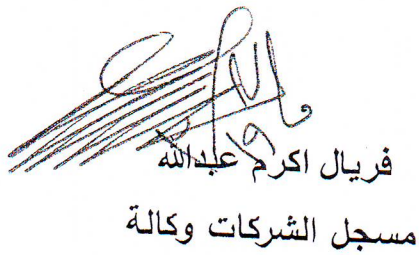 فريال اكرم عبدالله
مسجل الشركات وكالة